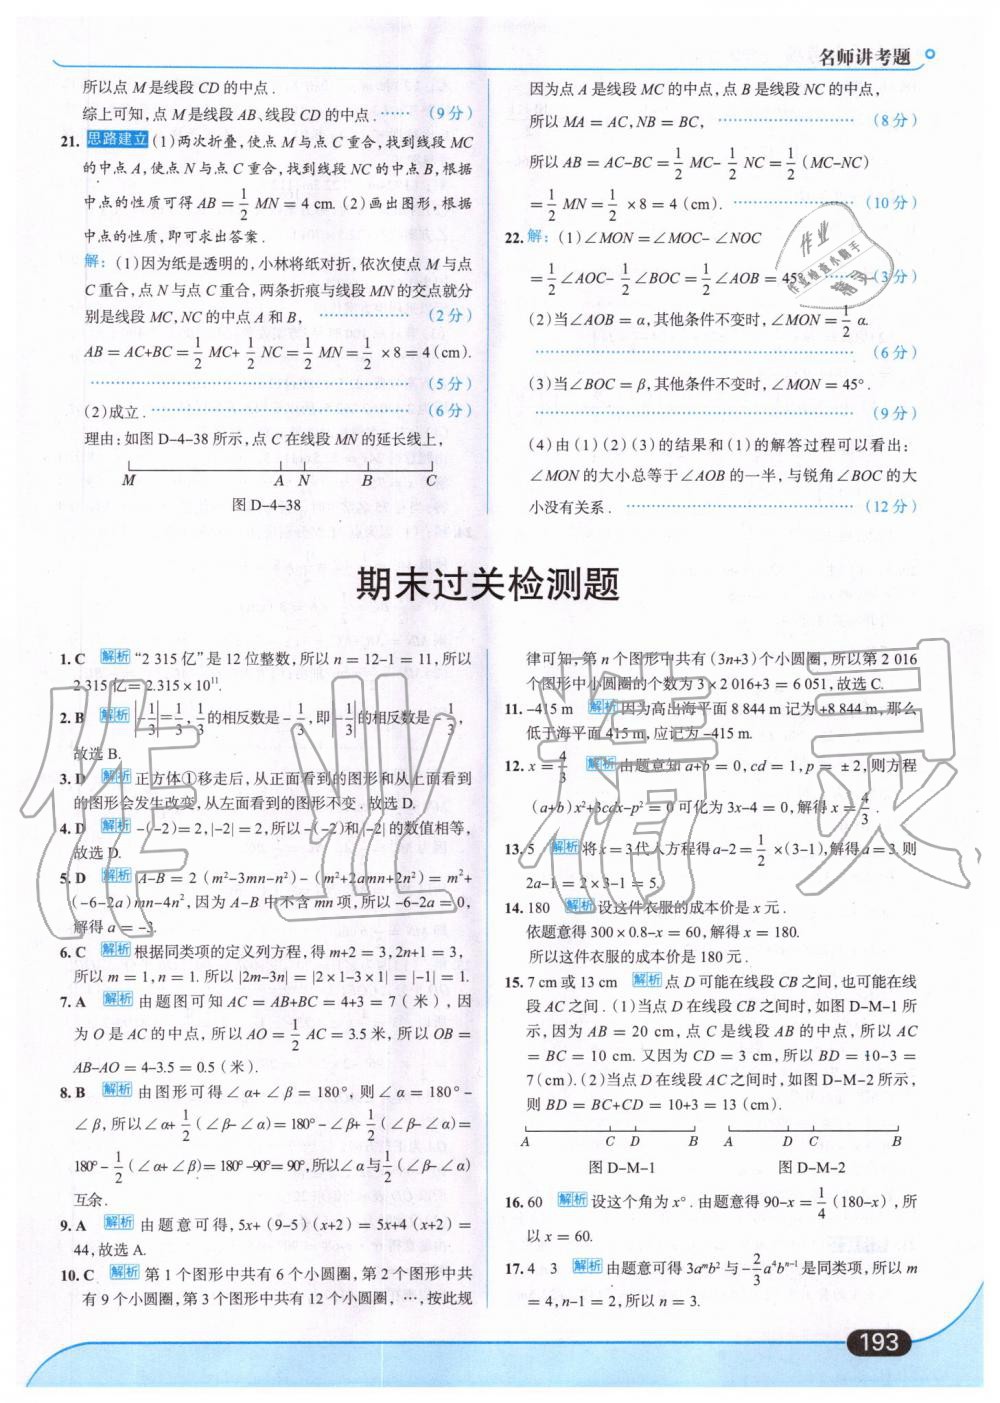 名师讲考题
所以点 M 是线段 CD 的中点.
综上可知,点 M 是线段 AB、线段 CD 的中点. …… (9 分)
21. 思路建立 (1)两次折叠,使点 M 与点 C 重合,找到线段 MC
的中点 A,使点 N 与点 C 重合,找到线段 NC 的中点 B,根据
中点的性质可得 AB = 1/2 MN = 4 cm. (2)画出图形,根据
中点的性质,即可求出答案.
解:(1)因为纸是透明的,小林将纸对折,依次使点 M 与点
C 重合,点 N 与点 C 重合,两条折痕与线段 MN 的交点就分
别是线段 MC,NC 的中点 A 和 B, …… (2 分)
AB = AC+BC = 1/2 MC+ 1/2 NC = 1/2 MN = 1/2 ×8 = 4(cm).
…… (5 分)
(2)成立. …… (6 分)
理由:如图 D-4-38 所示,点 C 在线段 MN 的延长线上,
M A N B C
图 D-4-38
因为点 A 是线段 MC 的中点,点 B 是线段 NC 的中点,
所以 MA = AC,NB = BC, …… (8 分)
所以 AB = AC-BC = 1/2 MC- 1/2 NC = 1/2 (MC-NC)
= 1/2 MN = 1/2 ×8 = 4 (cm). …… (10 分)
22. 解:(1)∠MON =∠MOC- ∠NOC
= 1/2 ∠AOC- 1/2 ∠BOC = 1/2 ∠AOB = 45° …… (3 分)
(2)当∠AOB = α,其他条件不变时,∠MON = 1/2 α.
…… (6 分)
(3)当∠BOC = β,其他条件不变时,∠MON = 45°.
…… (9 分)
(4)由(1)(2)(3)的结果和(1)的解答过程可以看出:
∠MON 的大小总等于∠AOB 的一半,与锐角∠BOC 的大
小没有关系. …… (12 分)
期末过关检测题
1. C 解析 “2 315 亿”是 12 位整数,所以 n = 12-1 = 11,所以
2 315 亿= 2.315×10¹¹.
2. B 解析 |-1/3|=1/3,1/3的相反数是-1/3,即|-1/3|的相反数是-1/3,
故选 B.
3. D 解析 正方体①移走后,从正面看到的图形和从上面看到
的图形会发生改变,从左面看到的图形不变.故选 D.
4. D 解析 -(-2)= 2,|-2| = 2,所以-(-2)和|-2|的数值相等,
故选 D.
5. D 解析 A-B = 2 (m²-3mn-n²)-(m²+2amn+2n²)= m²+
(-6-2a)mn-4n²,因为 A-B 中不含 mn 项,所以-6-2a = 0,
解得 a = -3.
6. C 解析 根据同类项的定义列方程,得 m+2 = 3,2n+1 = 3,
所以 m = 1,n = 1.所以|2m-3n| = |2×1-3×1| = |-1| = 1.
7. A 解析 由题图可知 AC = AB+BC = 4+3 = 7(米),因
为 O 是 AC 的中点,所以 AO = 1/2 AC = 3.5 米,所以 OB =
AB-AO = 4-3.5 = 0.5(米).
8. B 解析 由图形可得∠α+∠β = 180°,则∠α = 180°-
∠β,所以∠α+ 1/2 (∠β-∠α)= 180°-∠β+ 1/2 (∠β-∠α)=
180°- 1/2 (∠α+∠β)= 180°-90°= 90°,所以∠α与 1/2 (∠β-∠α)
互余.
9. A 解析 由题意可得,5x+(9-5)(x+2)= 5x+4(x+2)=
44,故选 A.
10. C 解析 第 1 个图形中共有 6 个小圆圈,第 2 个图形中共
有 9 个小圆圈,第 3 个图形中共有 12 个小圆圈,…,按此规
律可知,第 n 个图形中共有(3n+3)个小圆圈,所以第 2 016
个图形中小圆圈的个数为 3×2 016+3 = 6 051,故选 C.
11. -415 m 解析 因为高出海平面 8 844 m 记为+8 844 m,那么
低于海平面 415 m,应记为-415 m.
12. x = 4/3 解析 由题意知 a+b = 0,cd = 1,p = ±2,则方程
(a+b)x²+3cdx-p² = 0 可化为 3x-4 = 0,解得 x = 4/3.
13. 5 解析 将 x = 3代入方程得 a-2 = 1/2 ×(3-1),解得 a = 3.则
2a-1 = 2×3-1 = 5.
14. 180 解析 设这件衣服的成本价是 x 元.
依题意得 300×0.8-x = 60,解得 x = 180.
所以这件衣服的成本价是 180 元.
15. 7 cm 或 13 cm 解析 点 D 可能在线段 CB 之间,也可能在线
段 AC 之间.(1)当点 D 在线段 CB 之间时,如图 D-M-1 所
示,因为 AB = 20 cm,点 C 是线段 AB 的中点,所以 AC
= BC = 10 cm.又因为 CD = 3 cm,所以 BD = 10-3 =
7(cm).(2)当点 D 在线段 AC 之间时,如图 D-M-2 所示,
则 BD = BC+CD = 10+3 = 13 (cm).
A C D B A D C B
图 D-M-1 图 D-M-2
16. 60 解析 设这个角为 x°.由题意得 90-x = 1/4 (180-x),所
以 x = 60.
17. 4 3 解析 由题意可得 3aᵐb² 与 -2/3 a⁴bⁿ⁻¹ 是同类项,所以 m
= 4,n-1 = 2,所以 n = 3.
193
作业精灵